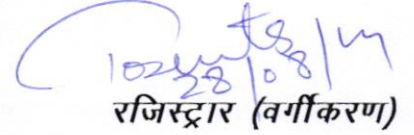 28/08/14
रजिस्ट्रार (वर्गीकरण)